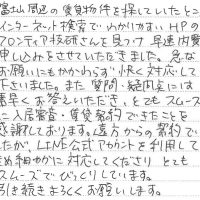 富山周辺の賃貸物件を探していたところ
インターネット検索でわかりやすいHPの
フロンティア技研さんを見つけ早速内覧
申し込みをさせていただきました。急な
お願いにもかかわらず快く対応して
下さいました。また質問・疑問点には
素早くお答えいただき、とてもスムーズ
に入居審査・賃貸契約できたことを
感謝しております。遠方からの契約で
したが、LINE公式アカウントを利用して
きめ細やかに対応してくださり とても
スムーズでびっくりしています。
引き続きよろしくお願いします。